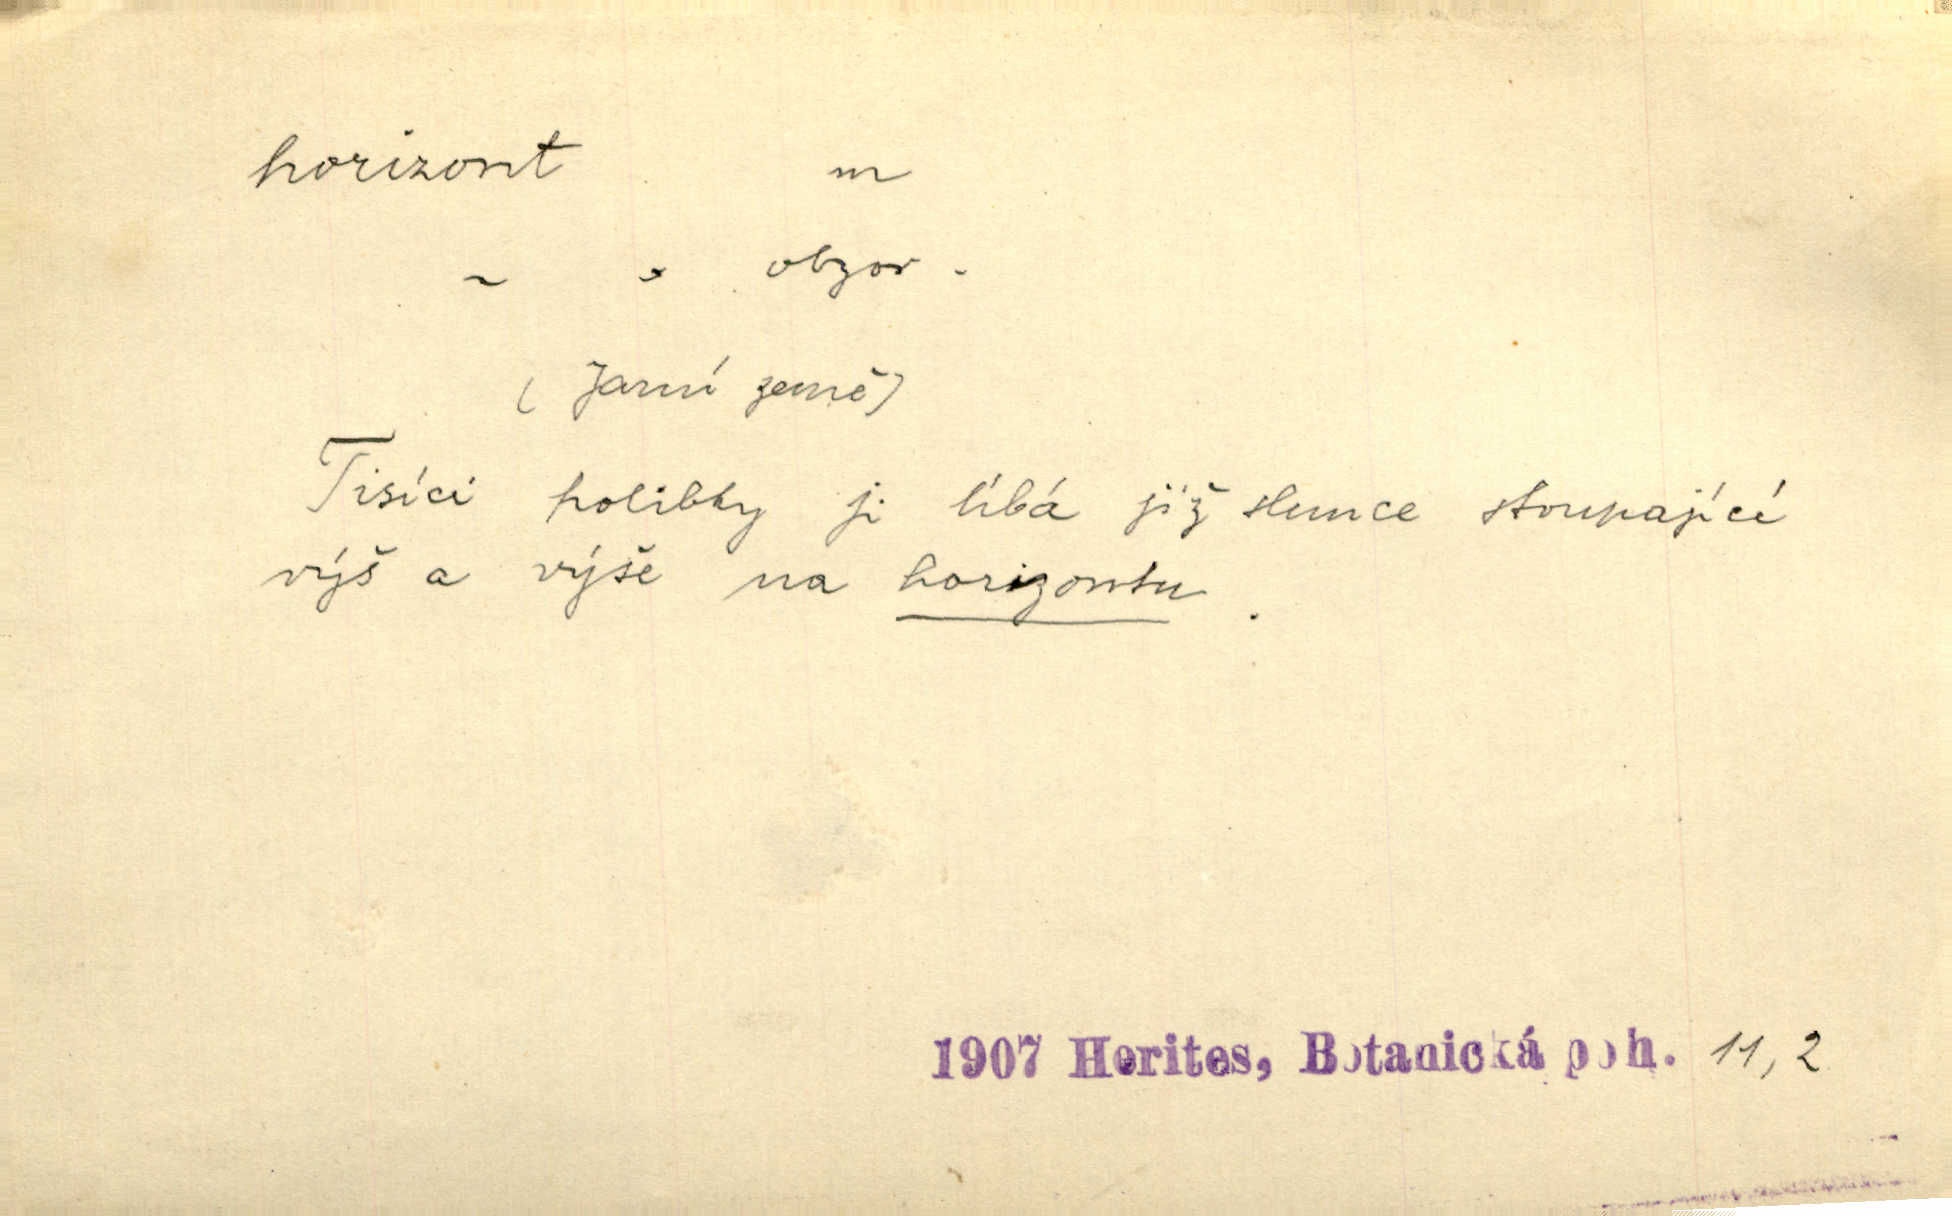 horizont m
~ × obzor.
(Jarní země)
Tisíci holibky ji líbá již slunce stoupající
výš a výše na horizontu.
1907 Herites, Botanická poh. 11, 2